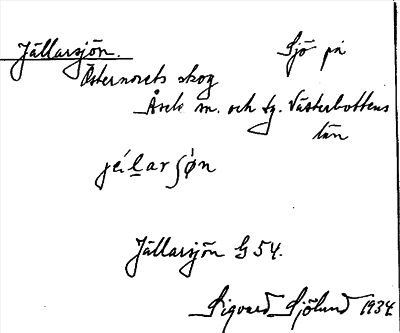 Jällarsjön. Sjö på
Östernorets skog
Åsele sn. och tg. Västerbottens
län
jéḷarʃø̀n
Jällarsjön G 54.
Sigvard Sjölund 1934